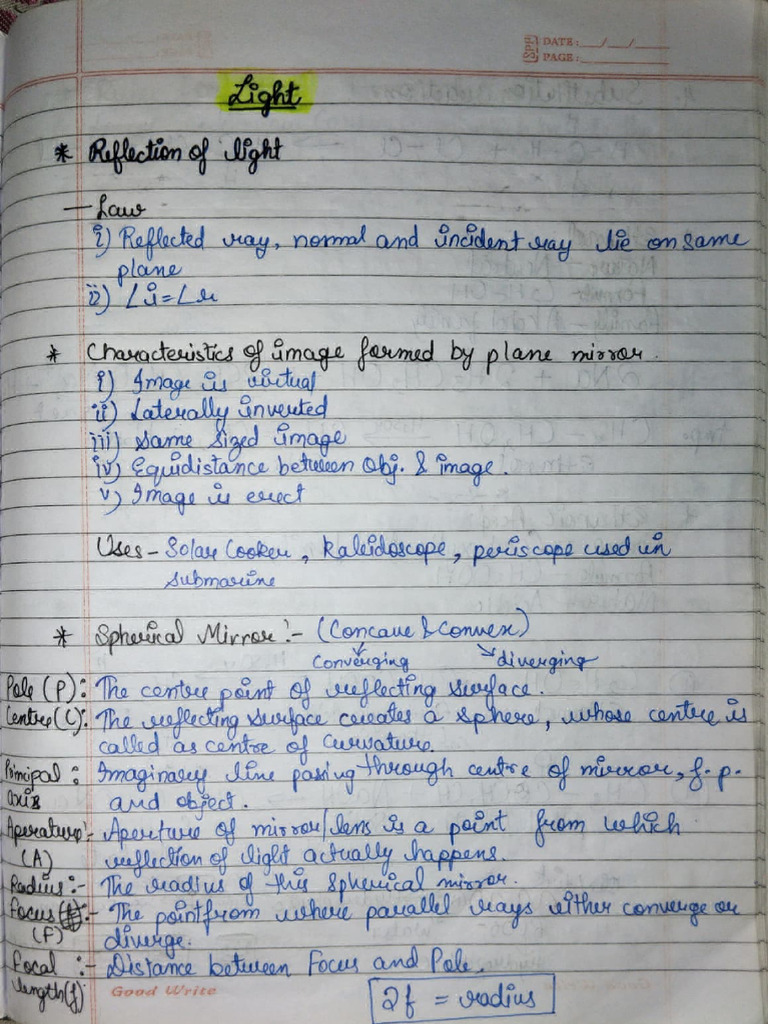 SPP DATE: __/__/__
PAGE: ______
Light
* Reflection of light
— Law
i) Reflected ray, normal and incident ray lie on same
plane
ii) ∠i = ∠r
* Characteristics of image formed by plane mirror.
i) Image is virtual
ii) Laterally inverted
iii) Same sized image
iv) Equidistance between obj. & image.
v) Image is erect
Uses - Solar Cooker, Kaleidoscope, periscope used in
submarine
* Spherical Mirror :- (Concave & Convex)
Converging diverging
Pole (P): The centre point of reflecting surface.
Centre (C): The reflecting surface creates a sphere, whose centre is
called as centre of curvature.
Principal : Imaginary line passing through centre of mirror, f.p.
axis and object.
Aperature :- Aperture of mirror/lens is a point from which
(A) reflection of light actually happens.
Radius :- The radius of this spherical mirror.
Focus :- The point from where parallel rays either converge or
(F) diverge.
Focal :- Distance between Focus and Pole.
length (f)
2f = radius
Good Write